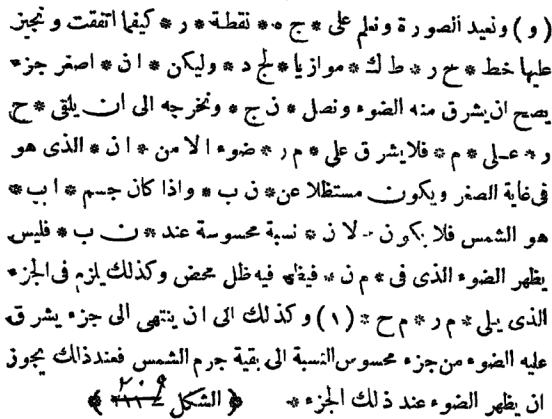 (و) ونعيد الصورة ونعلم على * ج ه * نقطة * ر * كيفما اتفقت ونجيز
عليها خط * ح ر * ط ك * موازيا * لج د * وليكن * ا ن * اصغر جزء
يصح ان يشرق منه الضوء ونصل * ن ج * ونخرجه الى ان يلتقى * ح
ر * على * م * فلا يشرق على * م ر * ضوء الا من * ا ن * الذى هو
فى غاية الصغر ويكون مستظلا عن * ن ب * واذا كان جسم * ا ب *
هو الشمس فلا يكون - لا ن * نسبة محسوسة عند * ن ب * فليس
يظهر الضوء الذى فى * م ن * فيفى فيه ظل محض وكذلك يلزم فى الجزء
الذى يلى * م ر * م ح * (١) وكذلك الى ان ينتهى الى جزء يشرق
عليه الضوء من جزء محسوس النسبة الى بقية جرم الشمس فعند ذالك يجوز
ان يظهر الضوء عند ذلك الجزء * ﴿ الشكل ٢٠٩ ﴾